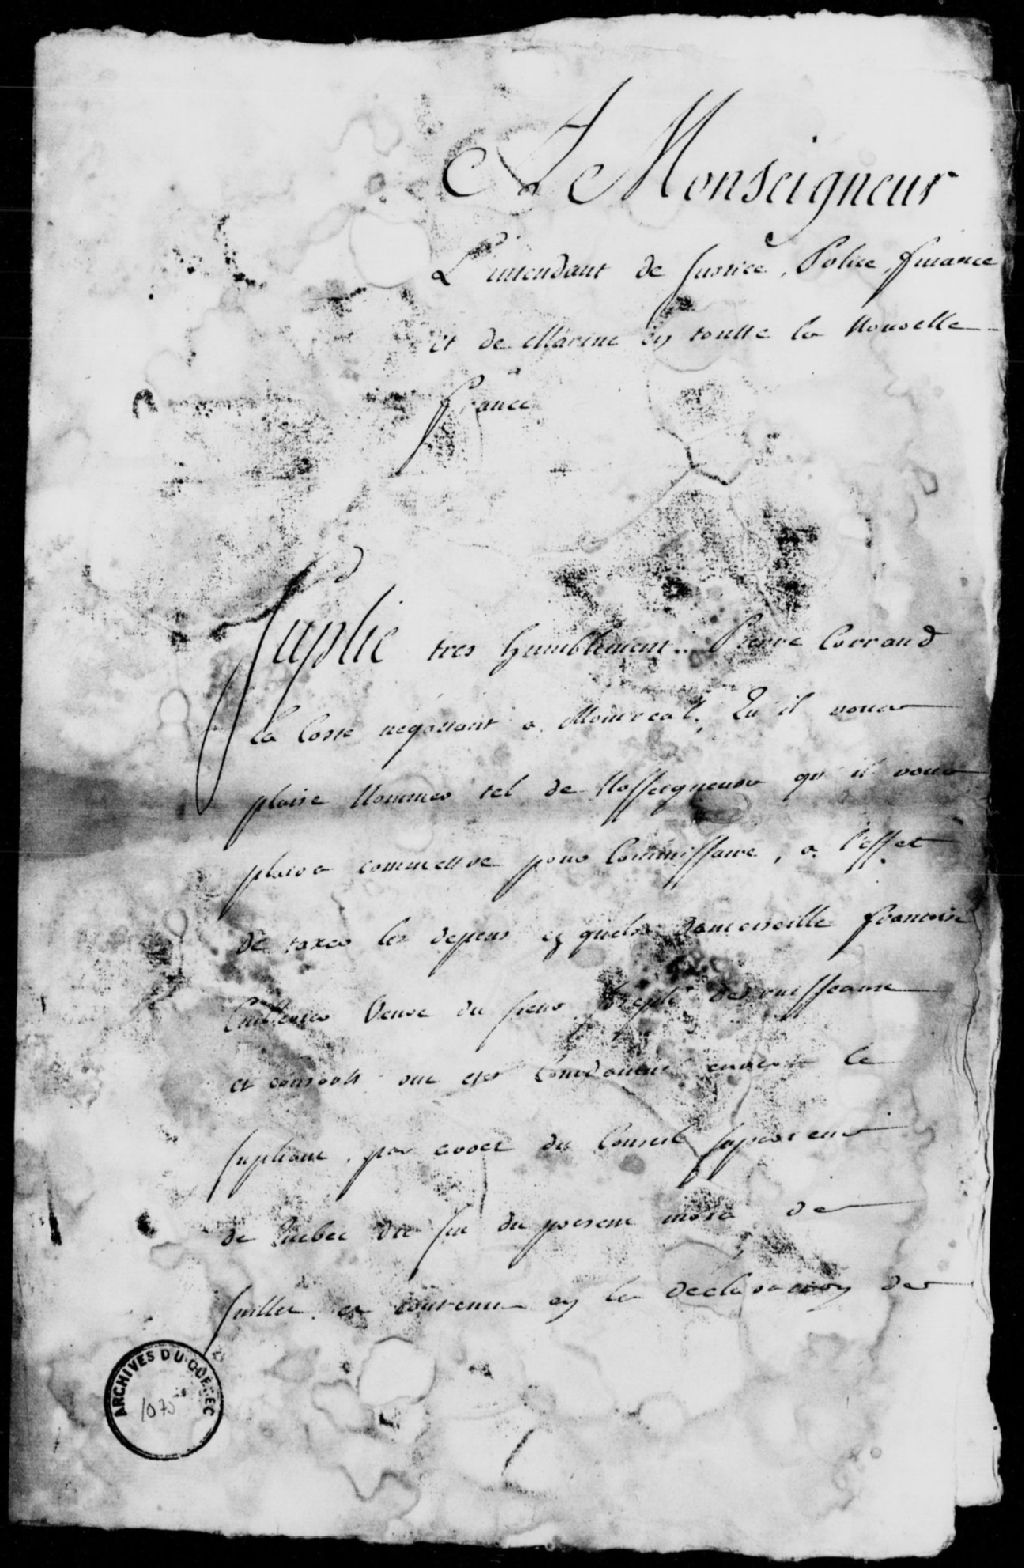 A Monseigneur
L'intendant de Justice, Police, finance
et de Marine en toutte la Nouvelle
france
Suplie tres humblement Pierre Corraud
la Coste negossiant a Montreal, Qu'il vous
plaise Nommer tel de Nosseigneurs qu'il vous
plaira commettre pour Commissaire, a l'effet
de taxer les depens es quels damoiselle francoise
veuve du sieur desruisseaux
et consorts ont eté Condamnes envers le
supliant, par arret du Conseil superieur
de Quebec du present mois de
Juillet et contenus en la declaration de
ARCHIVES DU QUÉBEC
1070